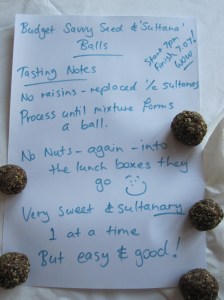 Budget Savvy Seed & 'Sultana'
Balls
Start 7pm
Finish 7.07!
WOW
Tasting Notes
No raisins - replaced ½ sultanas
Process until mixture forms
a ball.
No Nuts - again - into
the lunch boxes they
go
Very Sweet & sultanary
1 at a time
But easy & good!